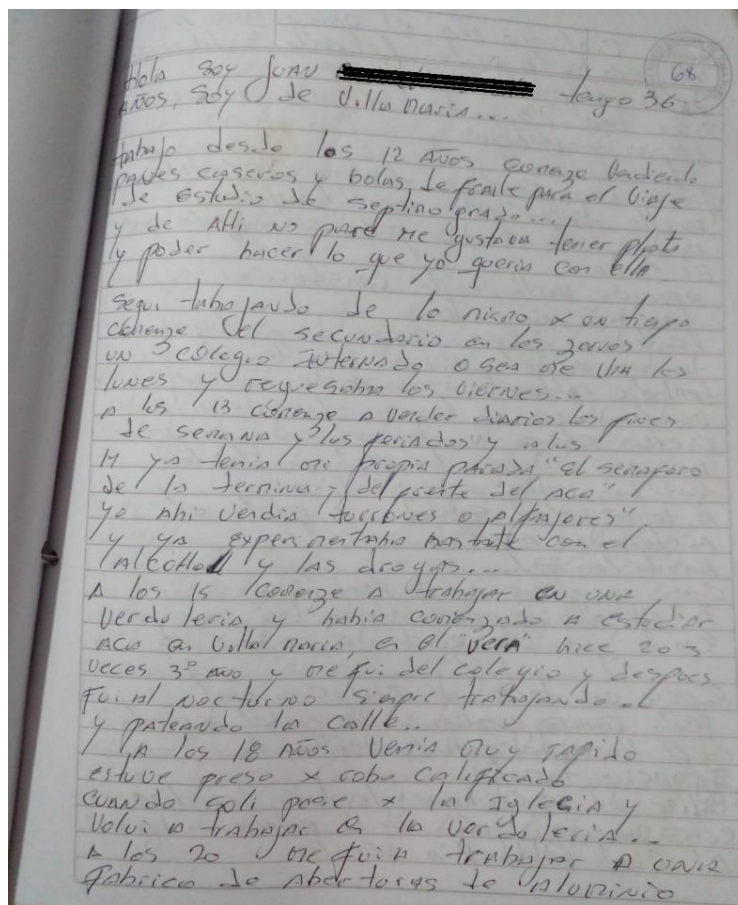 68
Hola soy JUAN tengo 36
AÑOS, soy de Villa Maria...
trabajo desde los 12 AÑOS comenze vendiendo
panes caseros y bolas de fraile para el viaje
de estudio de septimo grado...
y de Ahi no pare me gustava tener plata
y poder hacer lo que yo queria con ella
segui trabajando de lo mismo x un tiempo
comenze el secundario en los zorros
un colegio internado o sea me iva los
lunes y regresaba los viernes...
A los 13 comenze a vender diarios los fines
de semana y los feriados y a los
14 ya tenia mi propia parada "El semaforo
de la terminal, del frente del ACA"
yo Ahi vendia turrones o alfajores"
y ya experimentaba bastate con el
Alcohol y las drogas...
A los 15 comenze a trabajar en una
verduleria, y habia comenzado a estudiar
ACA en Villa maria, en el "VERA" hice 2 o 3
veces 3º año y me fui del colegio y despues
Fui al nocturno siempre trabajando
y pateando la calle..
A los 18 años venia muy rapido
estuve preso x robo calificado
cuando sali pase x la Iglecia y
volvi a trabajar en la verduleria...
A los 20 me fui a trabajar a una
fabrica de Aberturas de Aluminio